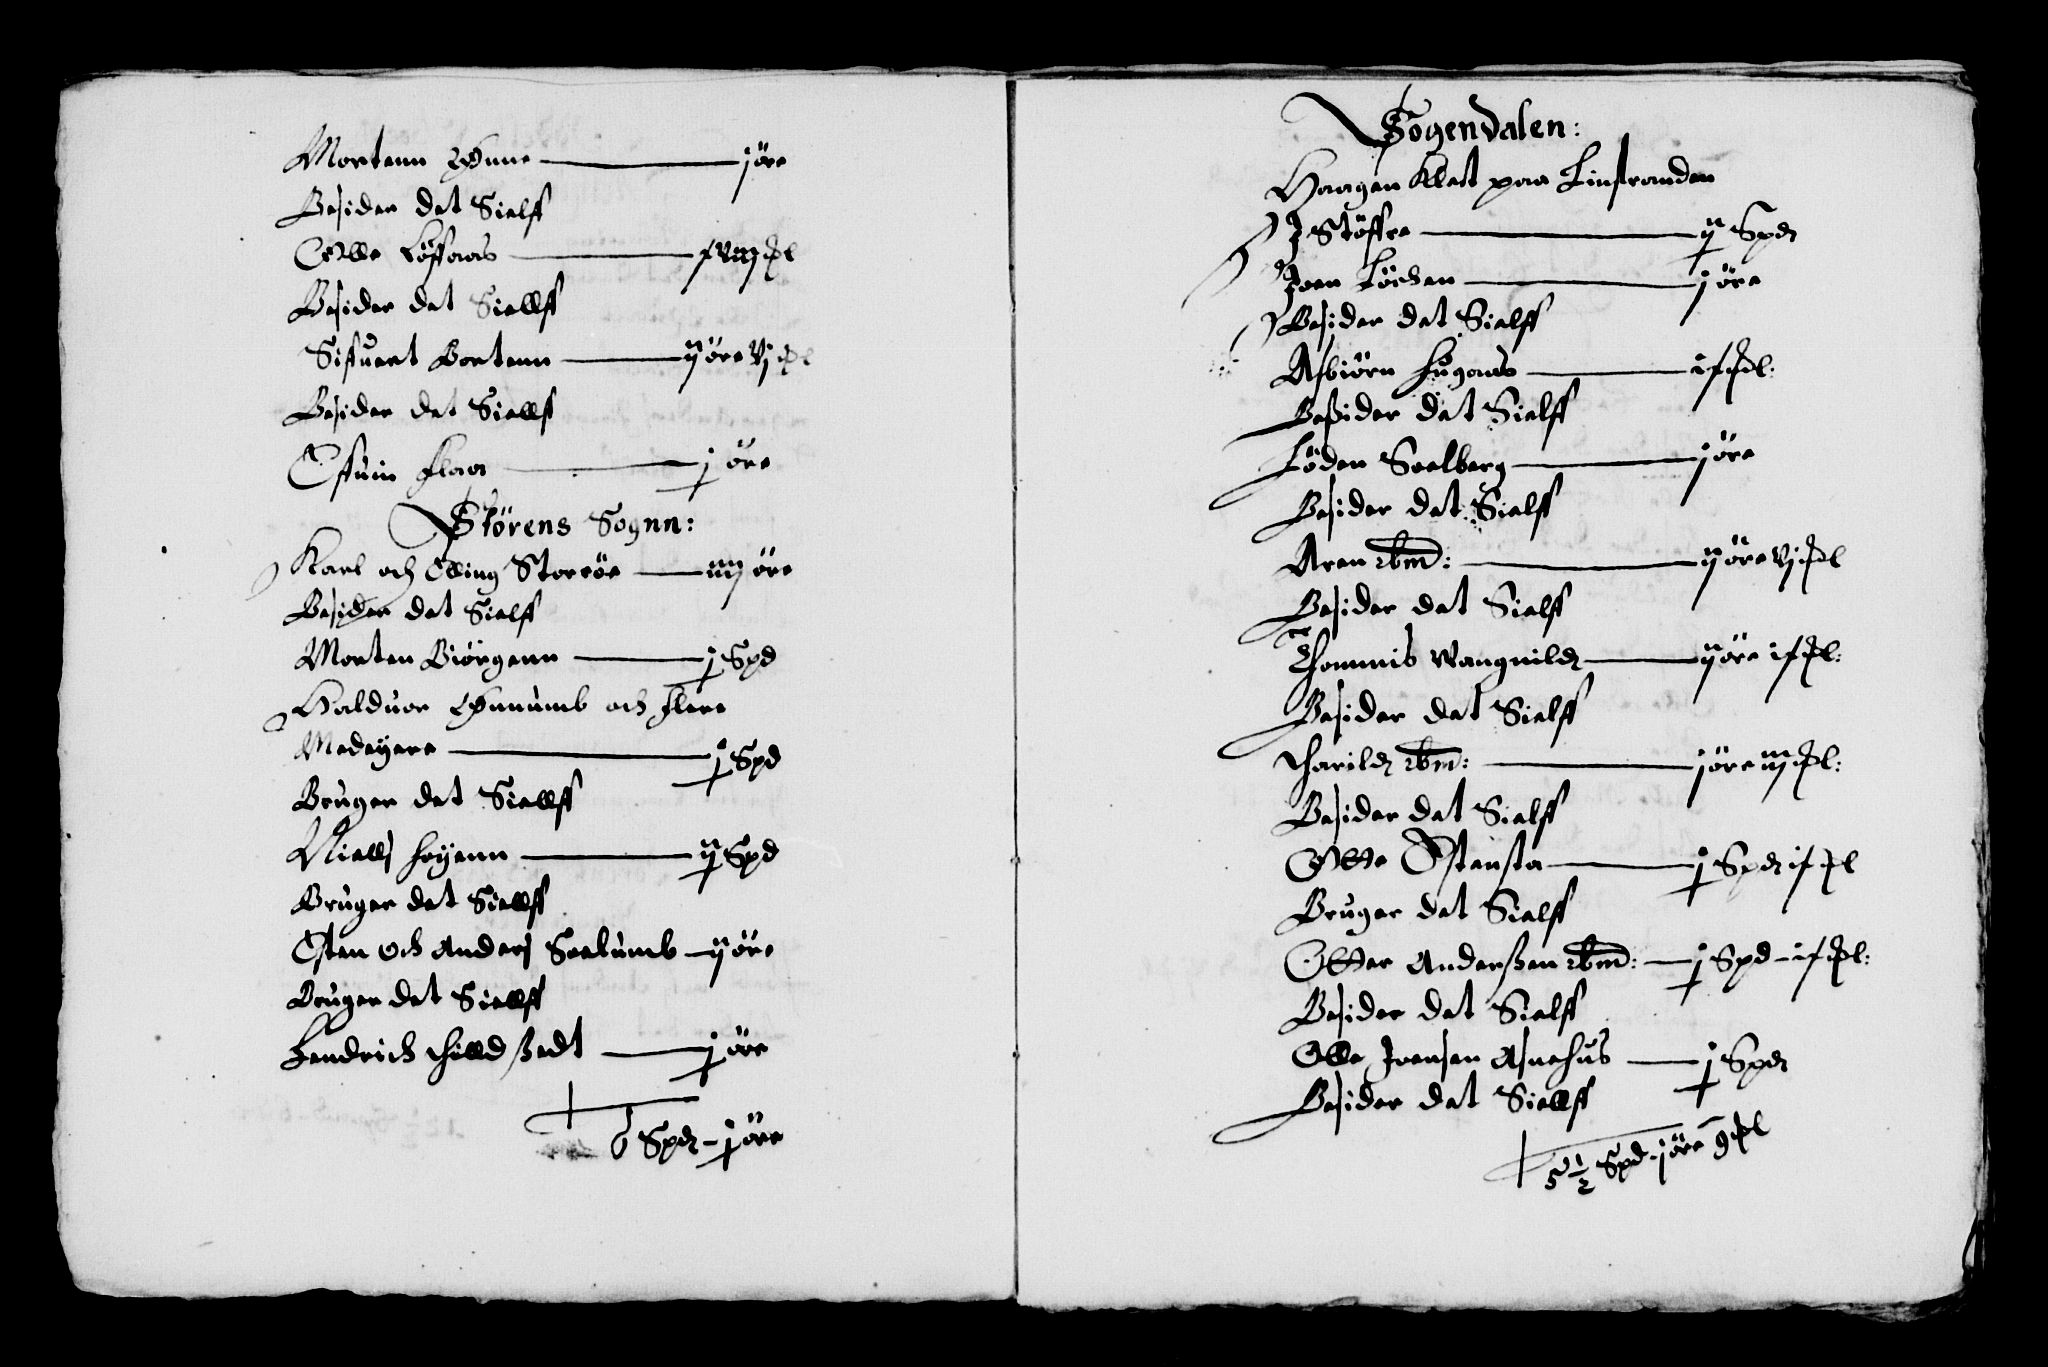 Mortenn Hunne — j öre
Besider det Sielff
Olle Löffaas — xviij pl
Besider det Siellff
Sifuert Bortenn — ij öre vj pl
Besider det Siellff
Esuin Flaa — j öre
Störens Sognn:
Karl och Elling Storröe — iiij öre
Besider det Sielff
Morten Biörgenn — j Spd
Halduor Hunnumb och flere
Medeyere — j Spd
Bruger det Siellff
Niells Hoyenn — ij Spd
Bruger det Siellff
Esten och Anders Soelumb — ij öre
Bruger det Siellff
Hendrich — j öre
6 Spd — j öre
Sogendalen:
Haagen Klett paa Linstranden
J Stöffre — ij Spd
Joen Löchen — j öre
Besider det Sielff
Asbiörn Hugaas — ix pl:
Beßider det Sielff
Löden Soelberg — j öre
Besider det Sielff
Aren ibm: — ij öre vj pl
Besider det Sielff
Thommis Wangnild — ij öre ix pl:
Besider det Sielff
Harild ibm: — j öre iij pl:
Besider det Sielff
Otte Østensta — j Spd ix pl
Bruger det Sielff
Otter Anderßen ibm: — j Spd – ix pl:
Besider det Sielff
Olle Joensen Asnehus — j Spd
Besider det Siellff
5 1/2 Spd – j öre 9 pl